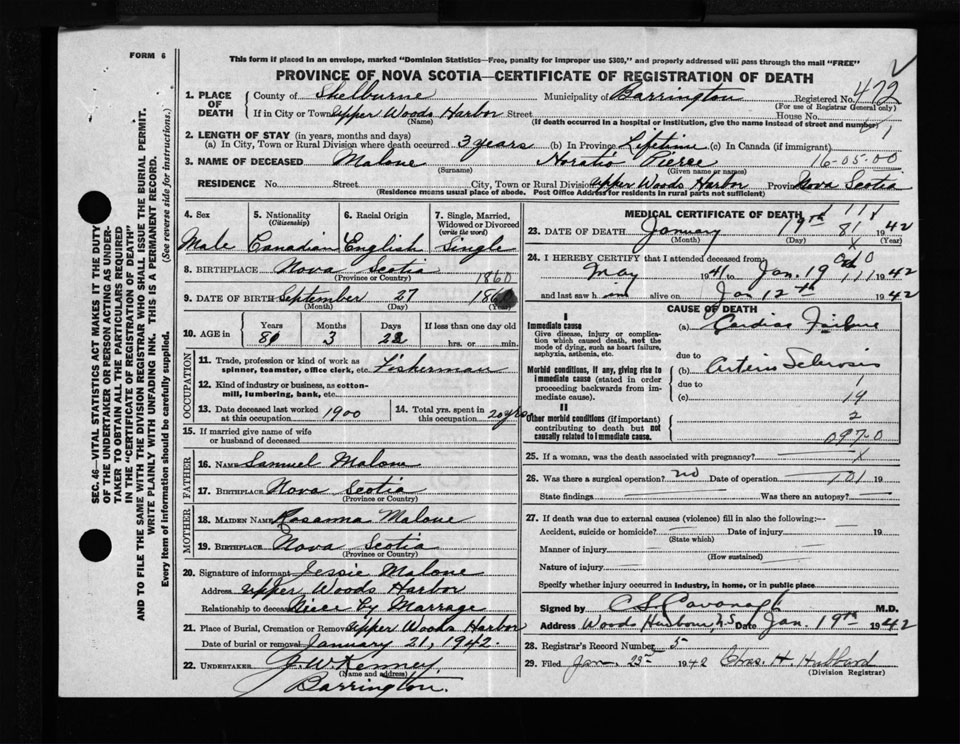 FORM 6
This form if placed in an envelope, marked "Dominion Statistics—Free, penalty for improper use $300," and properly addressed will pass through the mail "FREE"
PROVINCE OF NOVA SCOTIA—CERTIFICATE OF REGISTRATION OF DEATH
SEC. 46—VITAL STATISTICS ACT MAKES IT THE DUTY
OF THE UNDERTAKER OR PERSON ACTING AS UNDER-
TAKER TO OBTAIN ALL THE PARTICULARS REQUIRED
IN THE "CERTIFICATE OF REGISTRATION OF DEATH"
AND TO FILE THE SAME WITH THE DIVISION REGISTRAR WHO SHALL ISSUE THE BURIAL PERMIT.
WRITE PLAINLY WITH UNFADING INK. THIS IS A PERMANENT RECORD.
Every item of information should be carefully supplied. (See reverse side for instructions.)
1. PLACE OF DEATH County of Shelburne Municipality of Barrington Registered No. 472
(For use of Registrar General only)
If in City or Town Upper Woods Harbor Street House No.
(Name) (If death occurred in a hospital or institution, give the name instead of street and number)
2. LENGTH OF STAY (in years, months and days)
(a) In City, Town or Rural Division where death occurred 3 years (b) In Province Lifetime (c) In Canada (if immigrant)
3. NAME OF DECEASED Malone Horatio Pierce 16-05-00
(Surname) (Given name or names)
RESIDENCE No. Street City, Town or Rural Division Upper Woods Harbor Province Nova Scotia
(Residence means usual place of abode. Post Office Address for residents in rural parts not sufficient)
4. Sex Male
5. Nationality (Citizenship) Canadian
6. Racial Origin English
7. Single, Married, Widowed or Divorced (write the word) Single
8. BIRTHPLACE Nova Scotia
(Province or Country) 1860
9. DATE OF BIRTH September 27 186
(Month) (Day) (Year)
10. AGE in Years Months Days If less than one day old
81 3 22 hrs. or min.
OCCUPATION
11. Trade, profession or kind of work as spinner, teamster, office clerk, etc. Fisherman
12. Kind of industry or business, as cotton-mill, lumbering, bank, etc.
13. Date deceased last worked at this occupation 1900
14. Total yrs. spent in this occupation 20 yrs
15. If married give name of wife or husband of deceased
FATHER
16. NAME Samuel Malone
17. BIRTHPLACE Nova Scotia
(Province or Country)
MOTHER
18. MAIDEN NAME Rosanna Malone
19. BIRTHPLACE Nova Scotia
(Province or Country)
20. Signature of informant Jessie Malone
Address Upper Woods Harbor
Relationship to deceased Niece by Marrage
21. Place of Burial, Cremation or Removal Upper Woods Harbor
Date of burial or removal January 21, 1942.
22. UNDERTAKER J. W. Kenney
(Name and address)
Barrington.
MEDICAL CERTIFICATE OF DEATH
23. DATE OF DEATH January 19th 81 1942
(Month) (Day) (Year)
24. I HEREBY CERTIFY that I attended deceased from
May 1941 to Jan. 19 1942
and last saw h im alive on Jan 12th 1942
CAUSE OF DEATH
I
Immediate cause (a) Cardiac Failure
Give disease, injury or complication which caused death, not the mode of dying, such as heart failure, asphyxia, asthenia, etc.
due to
Morbid conditions, if any, giving rise to immediate cause (stated in order proceeding backwards from immediate cause). (b) Arterio Sclerosis
due to
(c)
19
II
2
Other morbid conditions (if important) contributing to death but not causally related to immediate cause.
097-0
25. If a woman, was the death associated with pregnancy? x
26. Was there a surgical operation? no Date of operation 101 19
State findings Was there an autopsy?
27. If death was due to external causes (violence) fill in also the following:
Accident, suicide or homicide? Date of injury 19
(State which)
Manner of injury
(How sustained)
Nature of injury
Specify whether injury occurred in industry, in home, or in public place
Signed by C S. Cavanagh M.D.
Address Woods Harbour, N.S Date Jan. 19th 1942
28. Registrar's Record Number 5
29. Filed Jan. 23rd 1942 Chas. H. Hubbard
(Division Registrar)